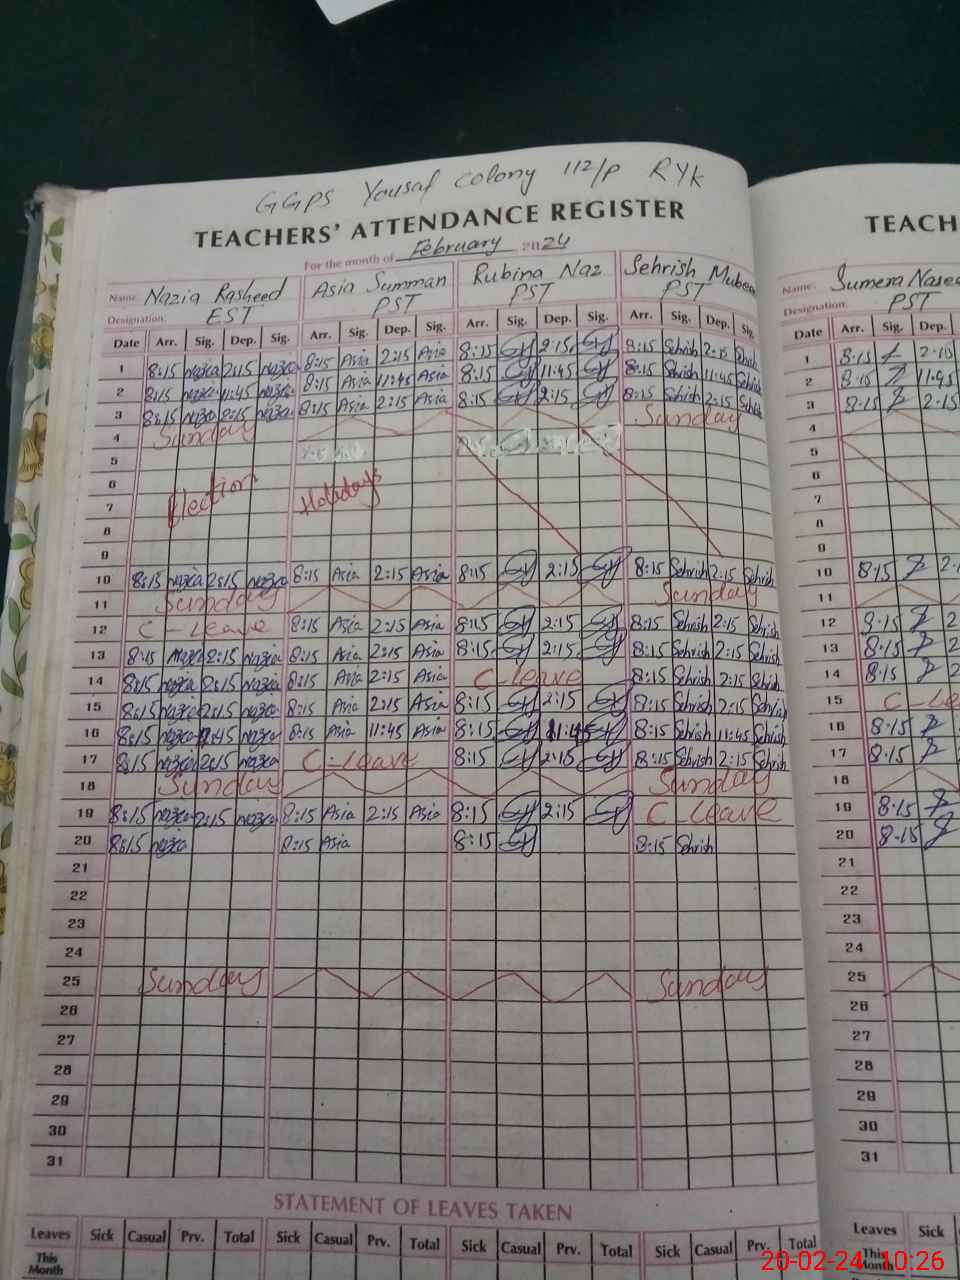 GGPS Yousaf Colony 112/P RYK
TEACHERS' ATTENDANCE REGISTER TEACH
For the month of February 2024
Name: Nazia Rasheed Asia Summan Rubina Naz Sehrish Mubeen Name: Sumera Naseer
Designation: EST PST PST PST Designation: PST
Date Arr. Sig. Dep. Sig. Arr. Sig. Dep. Sig. Arr. Sig. Dep. Sig. Arr. Sig. Dep. Sig. Date Arr. Sig. Dep.
1 8:15 nazia 2:15 nazia 8:15 Asia 2:15 Asia 8:15 2:15 8:15 Sehrish 2:15 Sehrish 1 8:15 2:15
2 8:15 nazia 11:45 nazia 8:15 Asia 11:45 Asia 8:15 11:45 8:15 Sehrish 11:45 Sehrish 2 8:15 11:45
3 8:15 nazia 2:15 nazia 8:15 Asia 2:15 Asia 8:15 2:15 8:15 Sehrish 2:15 Sehrish 3 8:15 2:15
4 Sunday Sunday 4
5 5
6 6
7 Election Holidays 7
8 8
9 9
10 8:15 nazia 2:15 nazia 8:15 Asia 2:15 Asia 8:15 2:15 8:15 Sehrish 2:15 Sehrish 10 8:15 2
11 Sunday Sunday 11
12 C-leave 8:15 Asia 2:15 Asia 8:15 2:15 8:15 Sehrish 2:15 Sehrish 12 8:15 2
13 8:15 nazia 2:15 nazia 8:15 Asia 2:15 Asia 8:15 2:15 8:15 Sehrish 2:15 Sehrish 13 8:15 2
14 8:15 nazia 2:15 nazia 8:15 Asia 2:15 Asia C-leave 8:15 Sehrish 2:15 Sehrish 14 8:15 2
15 8:15 nazia 2:15 nazia 8:15 Asia 2:15 Asia 8:15 2:15 8:15 Sehrish 2:15 Sehrish 15 C-Le
16 8:15 nazia 11:45 nazia 8:15 Asia 11:45 Asia 8:15 11:45 8:15 Sehrish 11:45 Sehrish 16 8:15
17 8:15 nazia 2:15 nazia C-leave 8:15 2:15 8:15 Sehrish 2:15 Sehrish 17 8:15 2
18 Sunday Sunday 18
19 8:15 nazia 2:15 nazia 8:15 Asia 2:15 Asia 8:15 2:15 C leave 19 8:15 2
20 8:15 nazia 8:15 Asia 8:15 8:15 Sehrish 20 8:15
21 21
22 22
23 23
24 24
25 Sunday Sunday 25
26 26
27 27
28 28
29 29
30 30
31 31
STATEMENT OF LEAVES TAKEN
Leaves Sick Casual Prv. Total Sick Casual Prv. Total Sick Casual Prv. Total Sick Casual Prv. Total Leaves Sick
This Month This Month
20-02-24 10:26